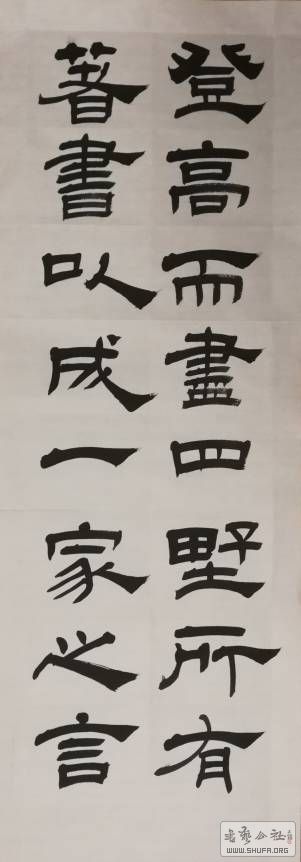 登高而盡四野所有
著書以成一家之言
WWW.SHUFA.ORG